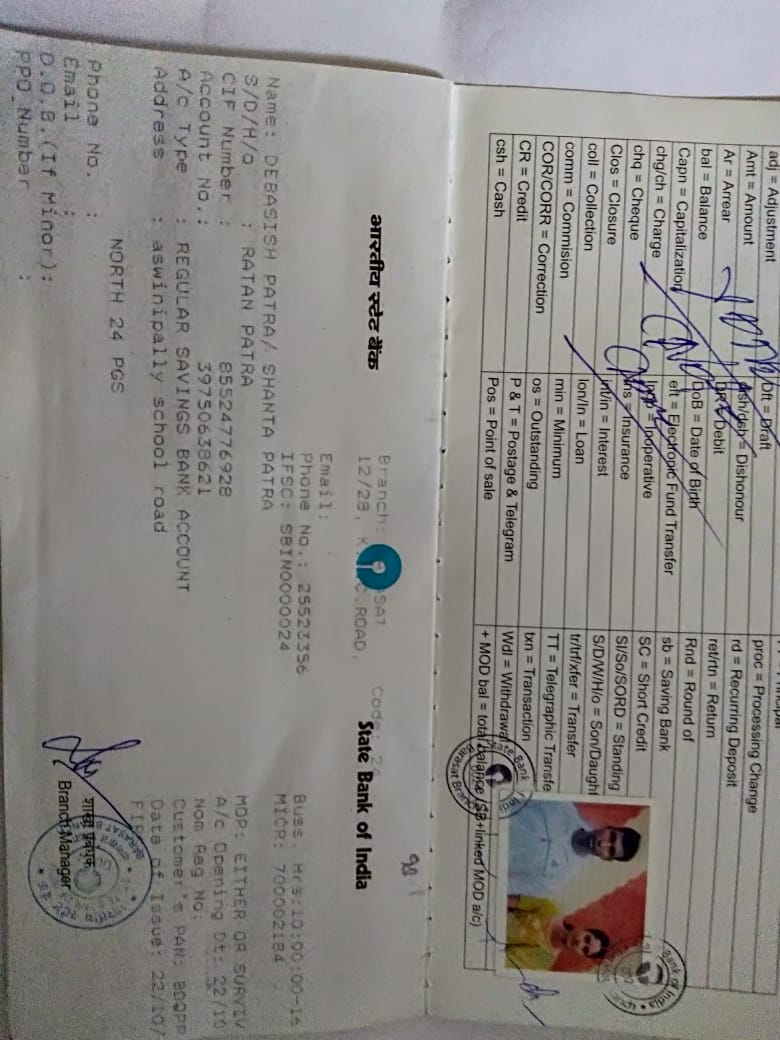 adj = Adjustment
Amt = Amount
Ar = Arrear
bal = Balance
Capn = Capitalization
chg/ch = Charge
chq = Cheque
Clos = Closure
coll = Collection
comm = Commision
COR/CORR = Correction
CR = Credit
csh = Cash
Dft = Draft
dsh/dsh = Dishonour
Debit
DoB = Date of Birth
eft = Electronic Fund Transfer
Inoperative
ins = Insurance
int/in = Interest
lon/ln = Loan
min = Minimum
os = Outstanding
P & T = Postage & Telegram
Pos = Point of sale
proc = Processing Change
rd = Recurring Deposit
ret/rtn = Return
Rnd = Round of
sb = Saving Bank
SC = Short Credit
SI/So/SORD = Standing
S/D/W/H/o = Son/Daught
tr/trf/xfer = Transfer
TT = Telegraphic Transfe
txn = Transaction
Wdl = Withdrawa
+ MOD bal = total balance (SB+linked MOD a/c)
State Bank of India
Barasat Branch
Bank of India
भारतीय स्टेट बैंक
State Bank of India
Branch: ASAT
12/28, K C.ROAD,
Email:
Phone No.: 25523356
IFSC: SBIN0000024
Buss. Hrs:10:00:00-16
MICR: 700002184
Name: DEBASISH PATRA/ SHANTA PATRA
S/D/H/o : RATAN PATRA
CIF Number : 85524776928
Account No.: 39750638621
A/c Type : REGULAR SAVINGS BANK ACCOUNT
Address : aswinipally school road
NORTH 24 PGS
Phone No. :
Email :
D.O.B.(If Minor):
PPO Number :
MOP: EITHER OR SURVIV
A/c Opening Dt: 22/10
Nom Reg No:
Customer's PAN: BDQPP
Date of Issue: 22/10/
शाखा प्रबंधक
Branch Manager